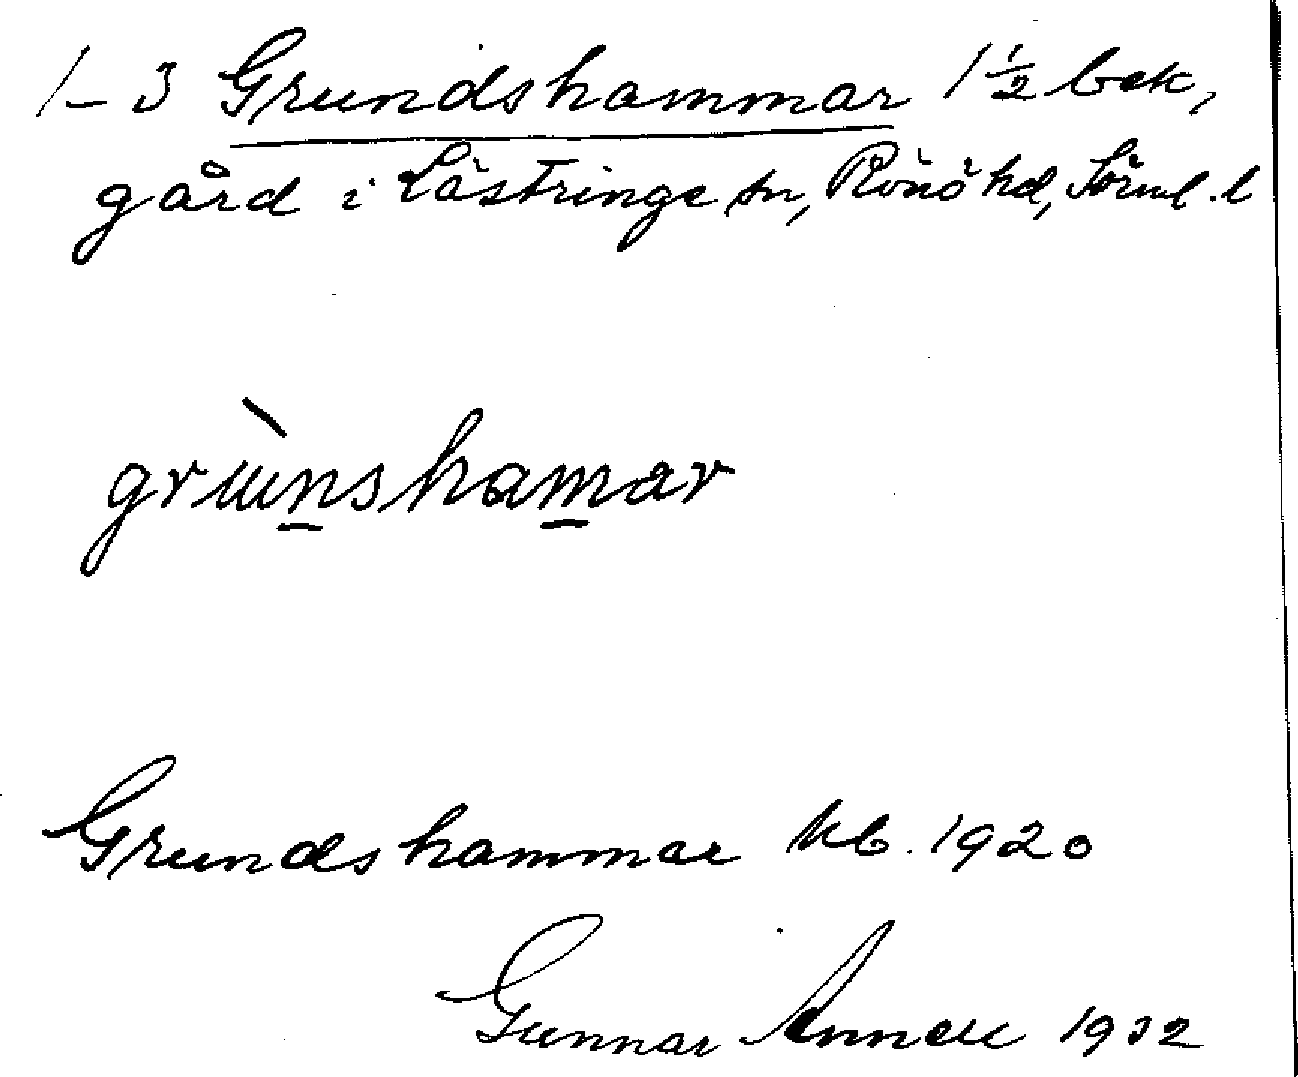 1-3 Grundshammar 1 ½ bek,
gård i Lästringe sn, Rönö hd, Sörml. l
grùnshamar
Grundshammar kb. 1920
Gunnar Annell 1932